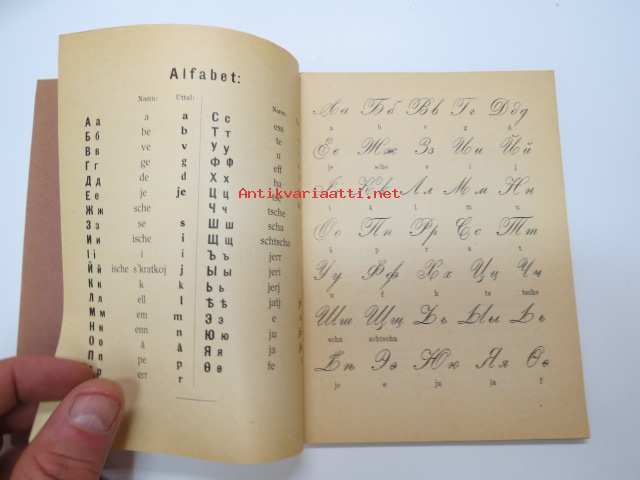 Alfabet:
Namn: Uttal: Namn:
А а a a С с ess
Б б be b Т т te
В в ve v У у u
Г г ge g Ф ф eff
Д д de d Х х ha
Е е je je Ц ц
Ж ж sche Ч ч tsche
З з se s Ш ш scha
И и ische i Щ щ schtscha
І і i i Ъ ъ jerr
Й й ische s'kratkoj j Ы ы jeri
К к k k Ь ь jerj
Л л ell l Ѣ ѣ jatj
М м em m Э э e
Н н enn n Ю ю ju
О о å å Я я ja
П п pe p Ѳ ѳ
err r
Antikvariaatti.net
Аа Бб Вв Гг Дд
a b v g d
Ее Жж Зз Ии Йй
je sche s i j
Іі Кк Лл Мм Нн
i k l m n
Оо Пп Рр Сс Тт
å p r s t
Уу Фф Хх Цц Чч
u f h ts tsche
Шш Щщ Ъъ Ыы Ьь
scha schtscha
Ѣѣ Ээ Юю Яя Ѳѳ
je e ju ja f